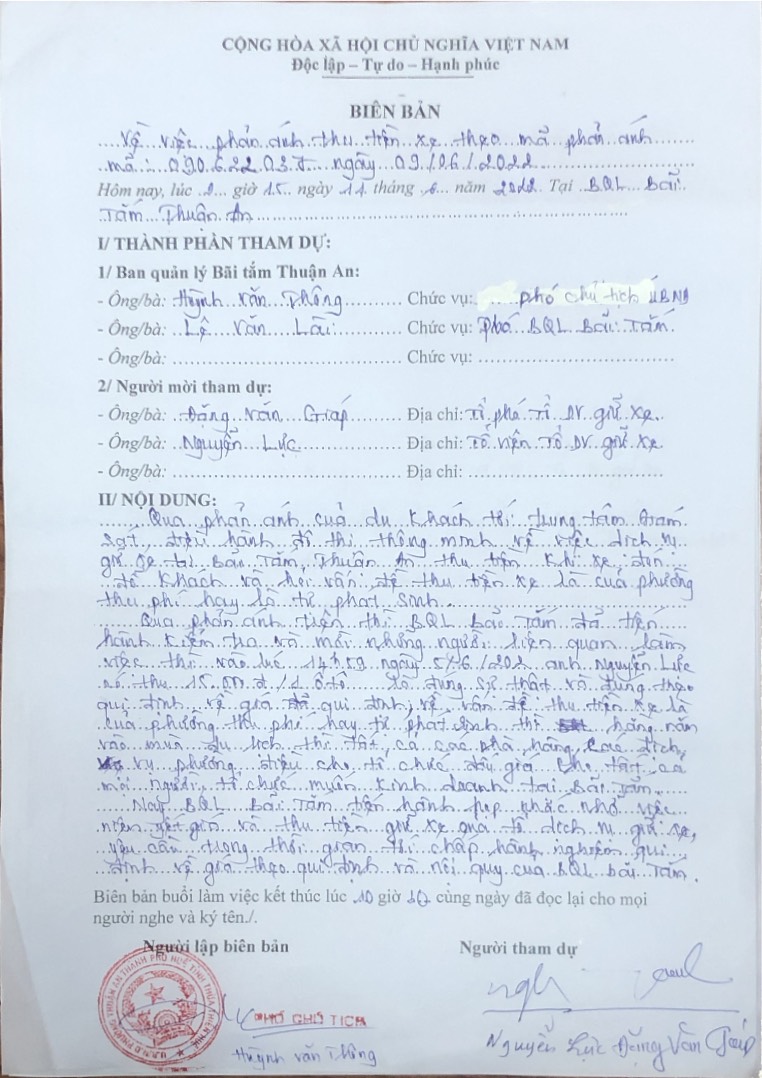 CỘNG HÒA XÃ HỘI CHỦ NGHĨA VIỆT NAM
Độc lập – Tự do – Hạnh phúc
BIÊN BẢN
Về việc phản ánh thu tiền xe theo mã phản ánh
mã: ngày 09/06/2022
Hôm nay, lúc 9 giờ 15 ngày tháng 6 năm 2022 Tại BQL Bãi
Tắm Thuận An
I/ THÀNH PHẦN THAM DỰ:
1/ Ban quản lý Bãi tắm Thuận An:
- Ông/bà: Huỳnh Văn Thông Chức vụ: phó chủ tịch UBND
- Ông/bà: Lê Văn Lài Chức vụ: Phó BQL Bãi Tắm
- Ông/bà: Chức vụ:
2/ Người mời tham dự:
- Ông/bà: Đặng Văn Giáp Địa chỉ: Tổ phó Tổ DV giữ xe
- Ông/bà: Nguyễn Lực Địa chỉ: Tổ viên Tổ DV giữ xe
- Ông/bà: Địa chỉ:
II/ NỘI DUNG:
Qua phản ánh của du khách tới trung tâm Giám
sát, điều hành đô thị thông minh về việc dịch vụ
giữ xe tại Bãi Tắm Thuận An thu tiền khi xe đến
để khách và hỏi vấn đề thu tiền xe là của phường
thu phí hay là tự phát sinh
Qua phản ánh trên thì BQL Bãi Tắm đã tiến
hành kiểm tra và mời những người liên quan làm
việc thì vào lúc 14h59 ngày 5/6/202 anh Nguyễn Lực
có thu 15.000đ/1 ôtô là đúng sự thật và đúng theo
qui định về giá qui định, về vấn đề thu tiền xe là
của phường thu phí hay tự phát sinh thì hằng năm
vào mùa du lịch thì tất cả các nhà hàng, các dịch
vụ phường điều cho tổ chức đấu giá cho tất cả
mọi người, tổ chức muốn kinh doanh tại Bãi Tắm
Nay BQL Bãi Tắm tiến hành họp nhắc nhở việc
niêm yết giá và thu tiền giữ xe qua tổ dịch vụ giữ xe,
yêu cầu trong thời gian tới chấp hành nghiêm qui
định về giá theo qui định và nội quy của BQL bãi Tắm.
Biên bản buổi làm việc kết thúc lúc 10 giờ cùng ngày đã đọc lại cho mọi
người nghe và ký tên./.
Người lập biên bản Người tham dự
PHÓ CHỦ TỊCH
Huỳnh Văn Thông Nguyễn Lực Đặng Văn Giáp